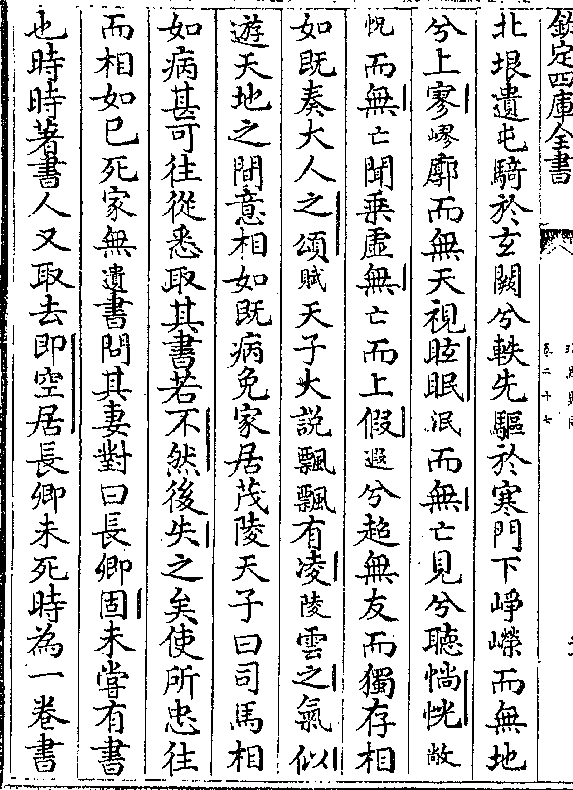 欽定四庫全書
卷二十七
北垠遺屯騎於玄闕兮軼先驅於寒門下崢嶸而無地
兮上寥嵺廓而無天視眩眠泯而無亡見兮聽惝恍敞
怳而無亡聞乗虛無亡而上假遐兮超無友而獨存相
如既奏大人之頌賦天子大説飄飄有凌陵雲之氣似
遊天地之間意相如既病免家居茂陵天子曰司馬相
如病甚可往從悉取其書若不然後失之矣使所忠往
而相如已死家無遺書問其妻對曰長卿固未嘗有書
也時時著書人又取去即空居長卿未死時為一卷書